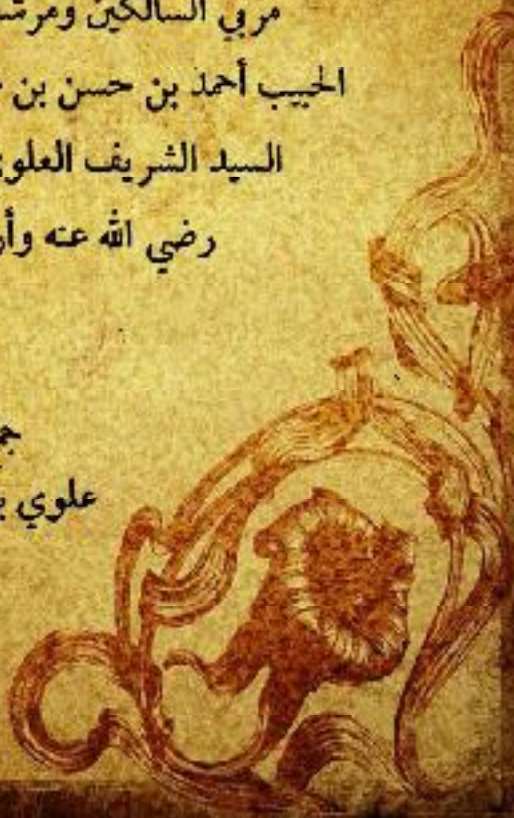 مربي السالكين
الحبيب أحمد بن حسن بن
السيد الشريف
رضي الله عنه
علوي